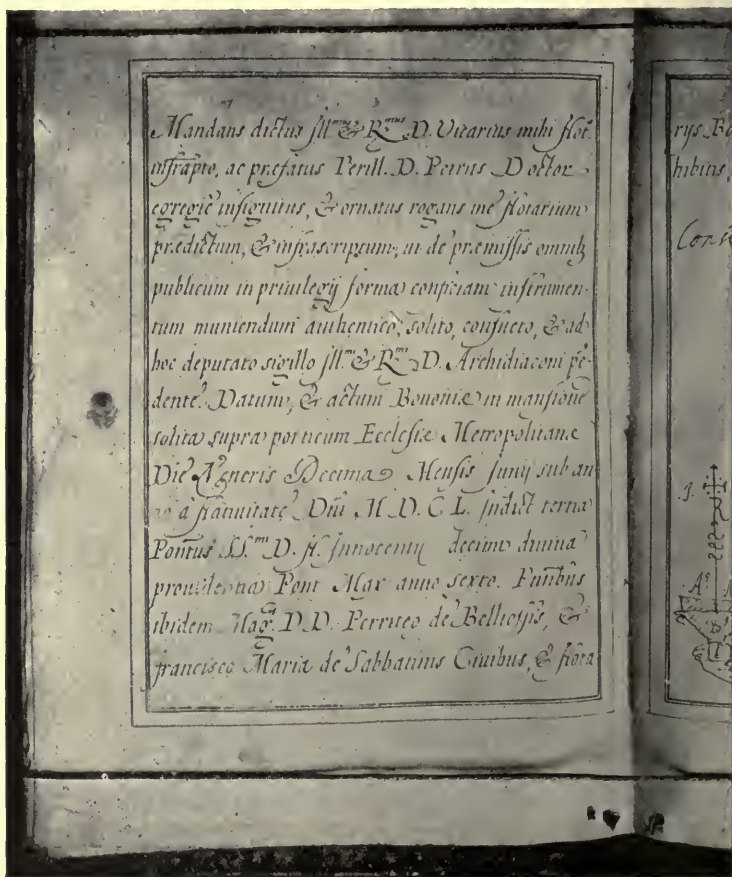 Mandans dictus Ill.mus & R.mus D. Vicarius mihi Not.
infrapto, ac præfatus Perill. D. Petrus Doctor
egregie insignitus, & ornatus rogans me Notarium
prædictum, & infrascriptum, ut de præmissis omnib
publicum in privilegij forma conficiam instrumen-
tum muniendum authentico, solito, consueto, & ad
hoc deputato sigillo Ill.mi & R.mi D. Archidiaconi pē-
dente. Datum, & actum Bononiæ in mansione
solita supra porticum Ecclesiæ Metropolitanæ
Die Veneris Decima Mensis Junij sub an
no a Nativitate Dñi M.D.C.L. Indict. tertia
Pontus SS.mi D. N. Innocentij decimi divina
providentia Pont Max anno sexto. Pntibus
ibidem Mag.cis D.D. de Belliossis, &
Francisco Maria de Sabbatinis Civibus, & Nota
rijs Bo
hibitis,